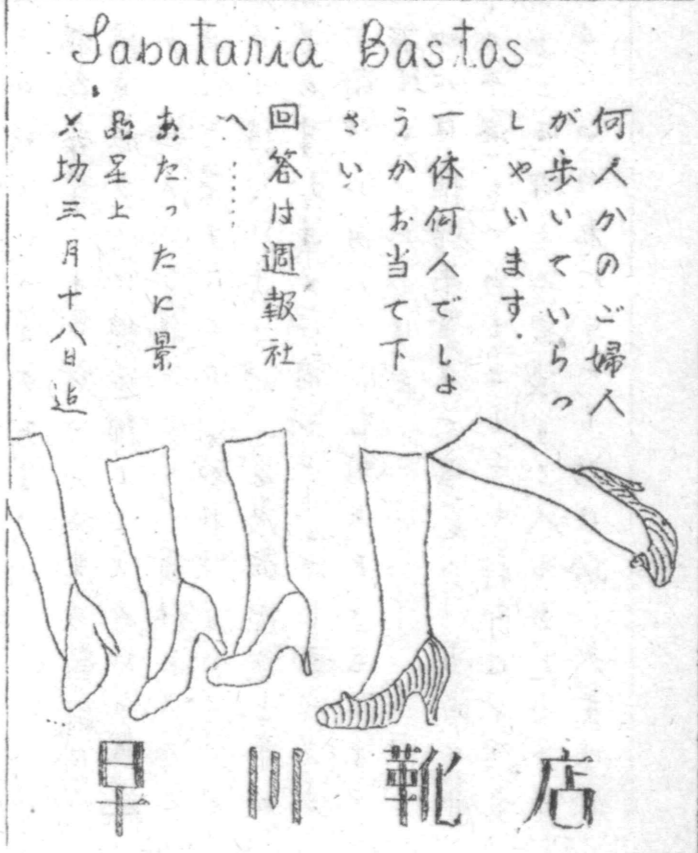 Sapataria Bastos
何人かのご婦人
が歩いていらっ
しゃいます.
一体何人でしょ
うかお当て下
さい
回答は週報社
へ……
あたったに景
品呈上
〆切三月十八日迄
早川靴店